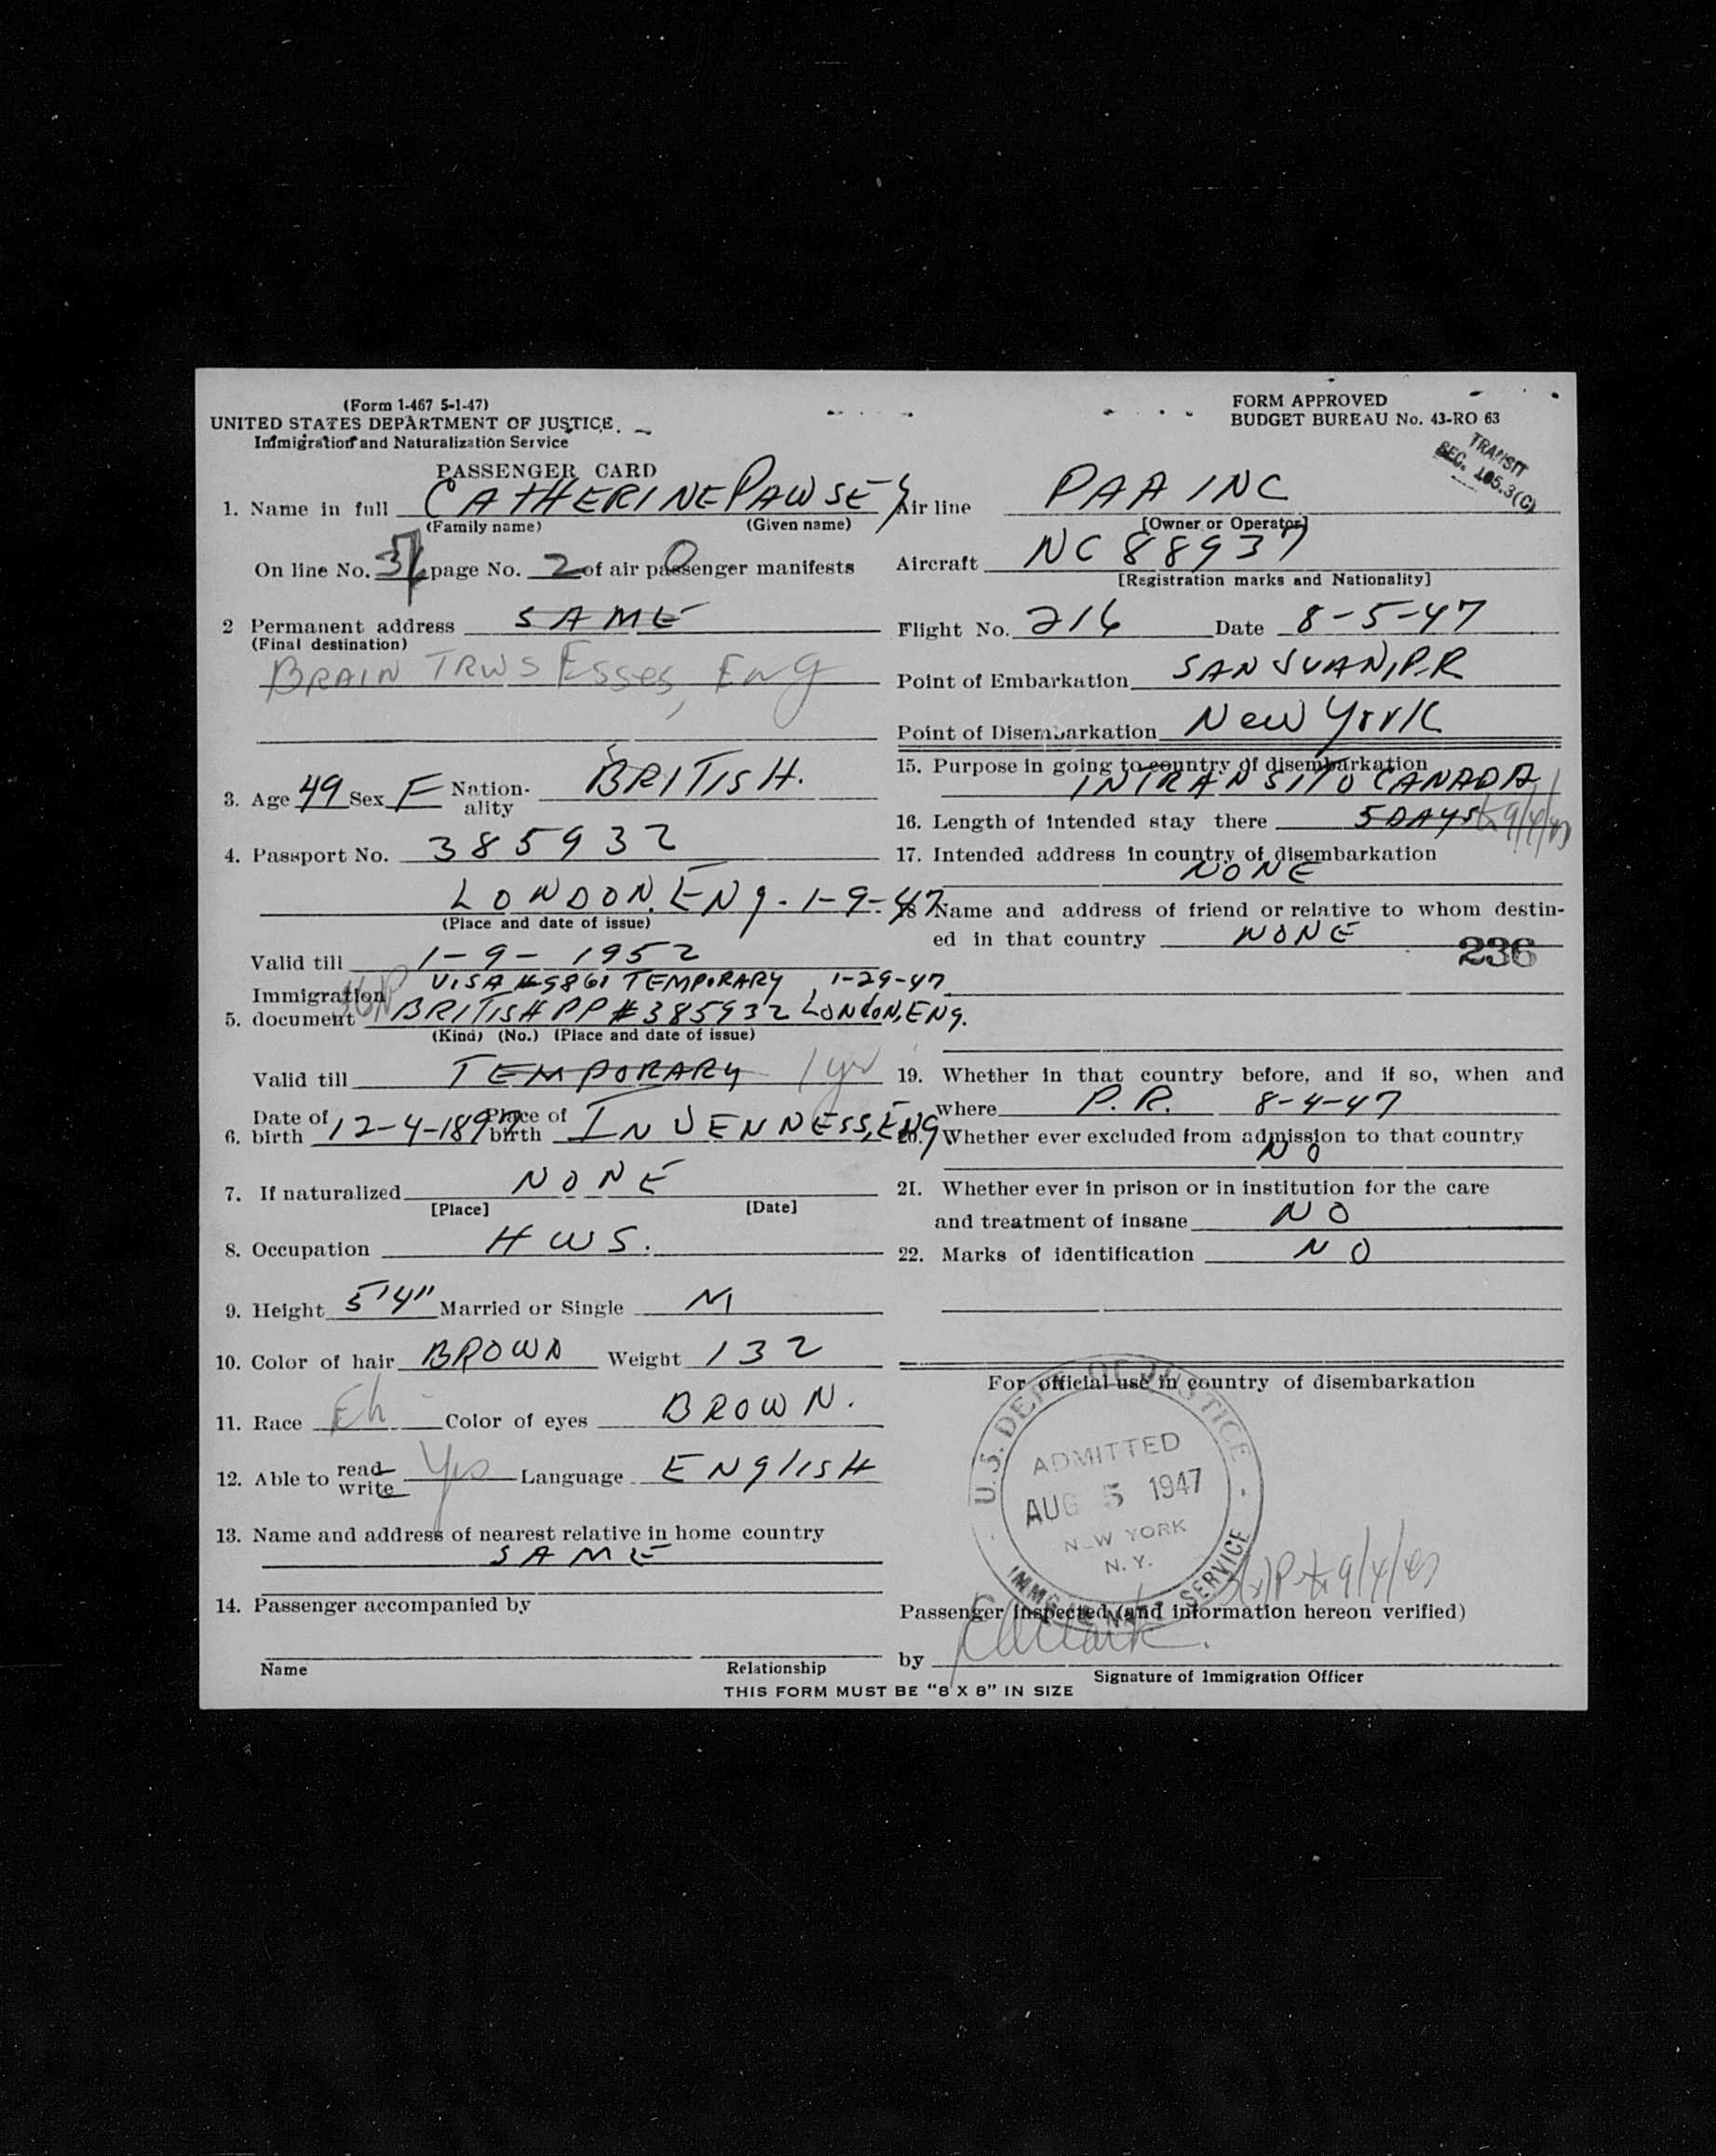 (Form 1-467 5-1-47)
UNITED STATES DEPARTMENT OF JUSTICE
Immigration and Naturalization Service
PASSENGER CARD
1. Name in full CATHERINE PAWSEY
(Family name) (Given name)
On line No. page No. 2 of air passenger manifests
2 Permanent address SAME
(Final destination)
BRAIN TRWS Esses, Eng
3. Age 49 Sex F Nationality BRITISH.
4. Passport No. 385932
LONDON, ENg. 1-9-47
(Place and date of issue)
Valid till 1-9-1952
VISA #9861 TEMPORARY 1-29-47
Immigration
5. document BRITISH PP #385932 LONDON, ENg.
(Kind) (No.) (Place and date of issue)
Valid till TEMPORARY 1 yr
6. Date of birth 12-4-1897 Place of birth INVENNESS, ENg
7. If naturalized NONE
[Place] [Date]
8. Occupation HWS.
9. Height 5'4" Married or Single M
10. Color of hair BROWN Weight 132
11. Race Eh Color of eyes BROWN.
12. Able to read write Yes Language ENglISH
13. Name and address of nearest relative in home country
SAME
14. Passenger accompanied by
Name Relationship
FORM APPROVED
BUDGET BUREAU No. 43-RO 63
TRANSIT
SEC. 105.3(C)
Air line PAA INC
[Owner or Operator]
Aircraft NC 88937
[Registration marks and Nationality]
Flight No. 216 Date 8-5-47
Point of Embarkation SAN JUAN, P.R
Point of Disembarkation New York
15. Purpose in going to country of disembarkation
IN TRANSIT TO CANADA
16. Length of intended stay there 5 DAYS 9/4/47
17. Intended address in country of disembarkation
NONE
18 Name and address of friend or relative to whom destin-
ed in that country NONE
236
19. Whether in that country before, and if so, when and
where P.R. 8-4-47
20. Whether ever excluded from admission to that country
NO
21. Whether ever in prison or in institution for the care
and treatment of insane NO
22. Marks of identification NO
For official use in country of disembarkation
U.S. DEPT. OF JUSTICE
ADMITTED
AUG 5 1947
NEW YORK
N.Y.
IMMIG. & NAT'Z SERVICE
9/4/47
Passenger inspected (and information hereon verified)
by
Signature of Immigration Officer
THIS FORM MUST BE "8 X 8" IN SIZE